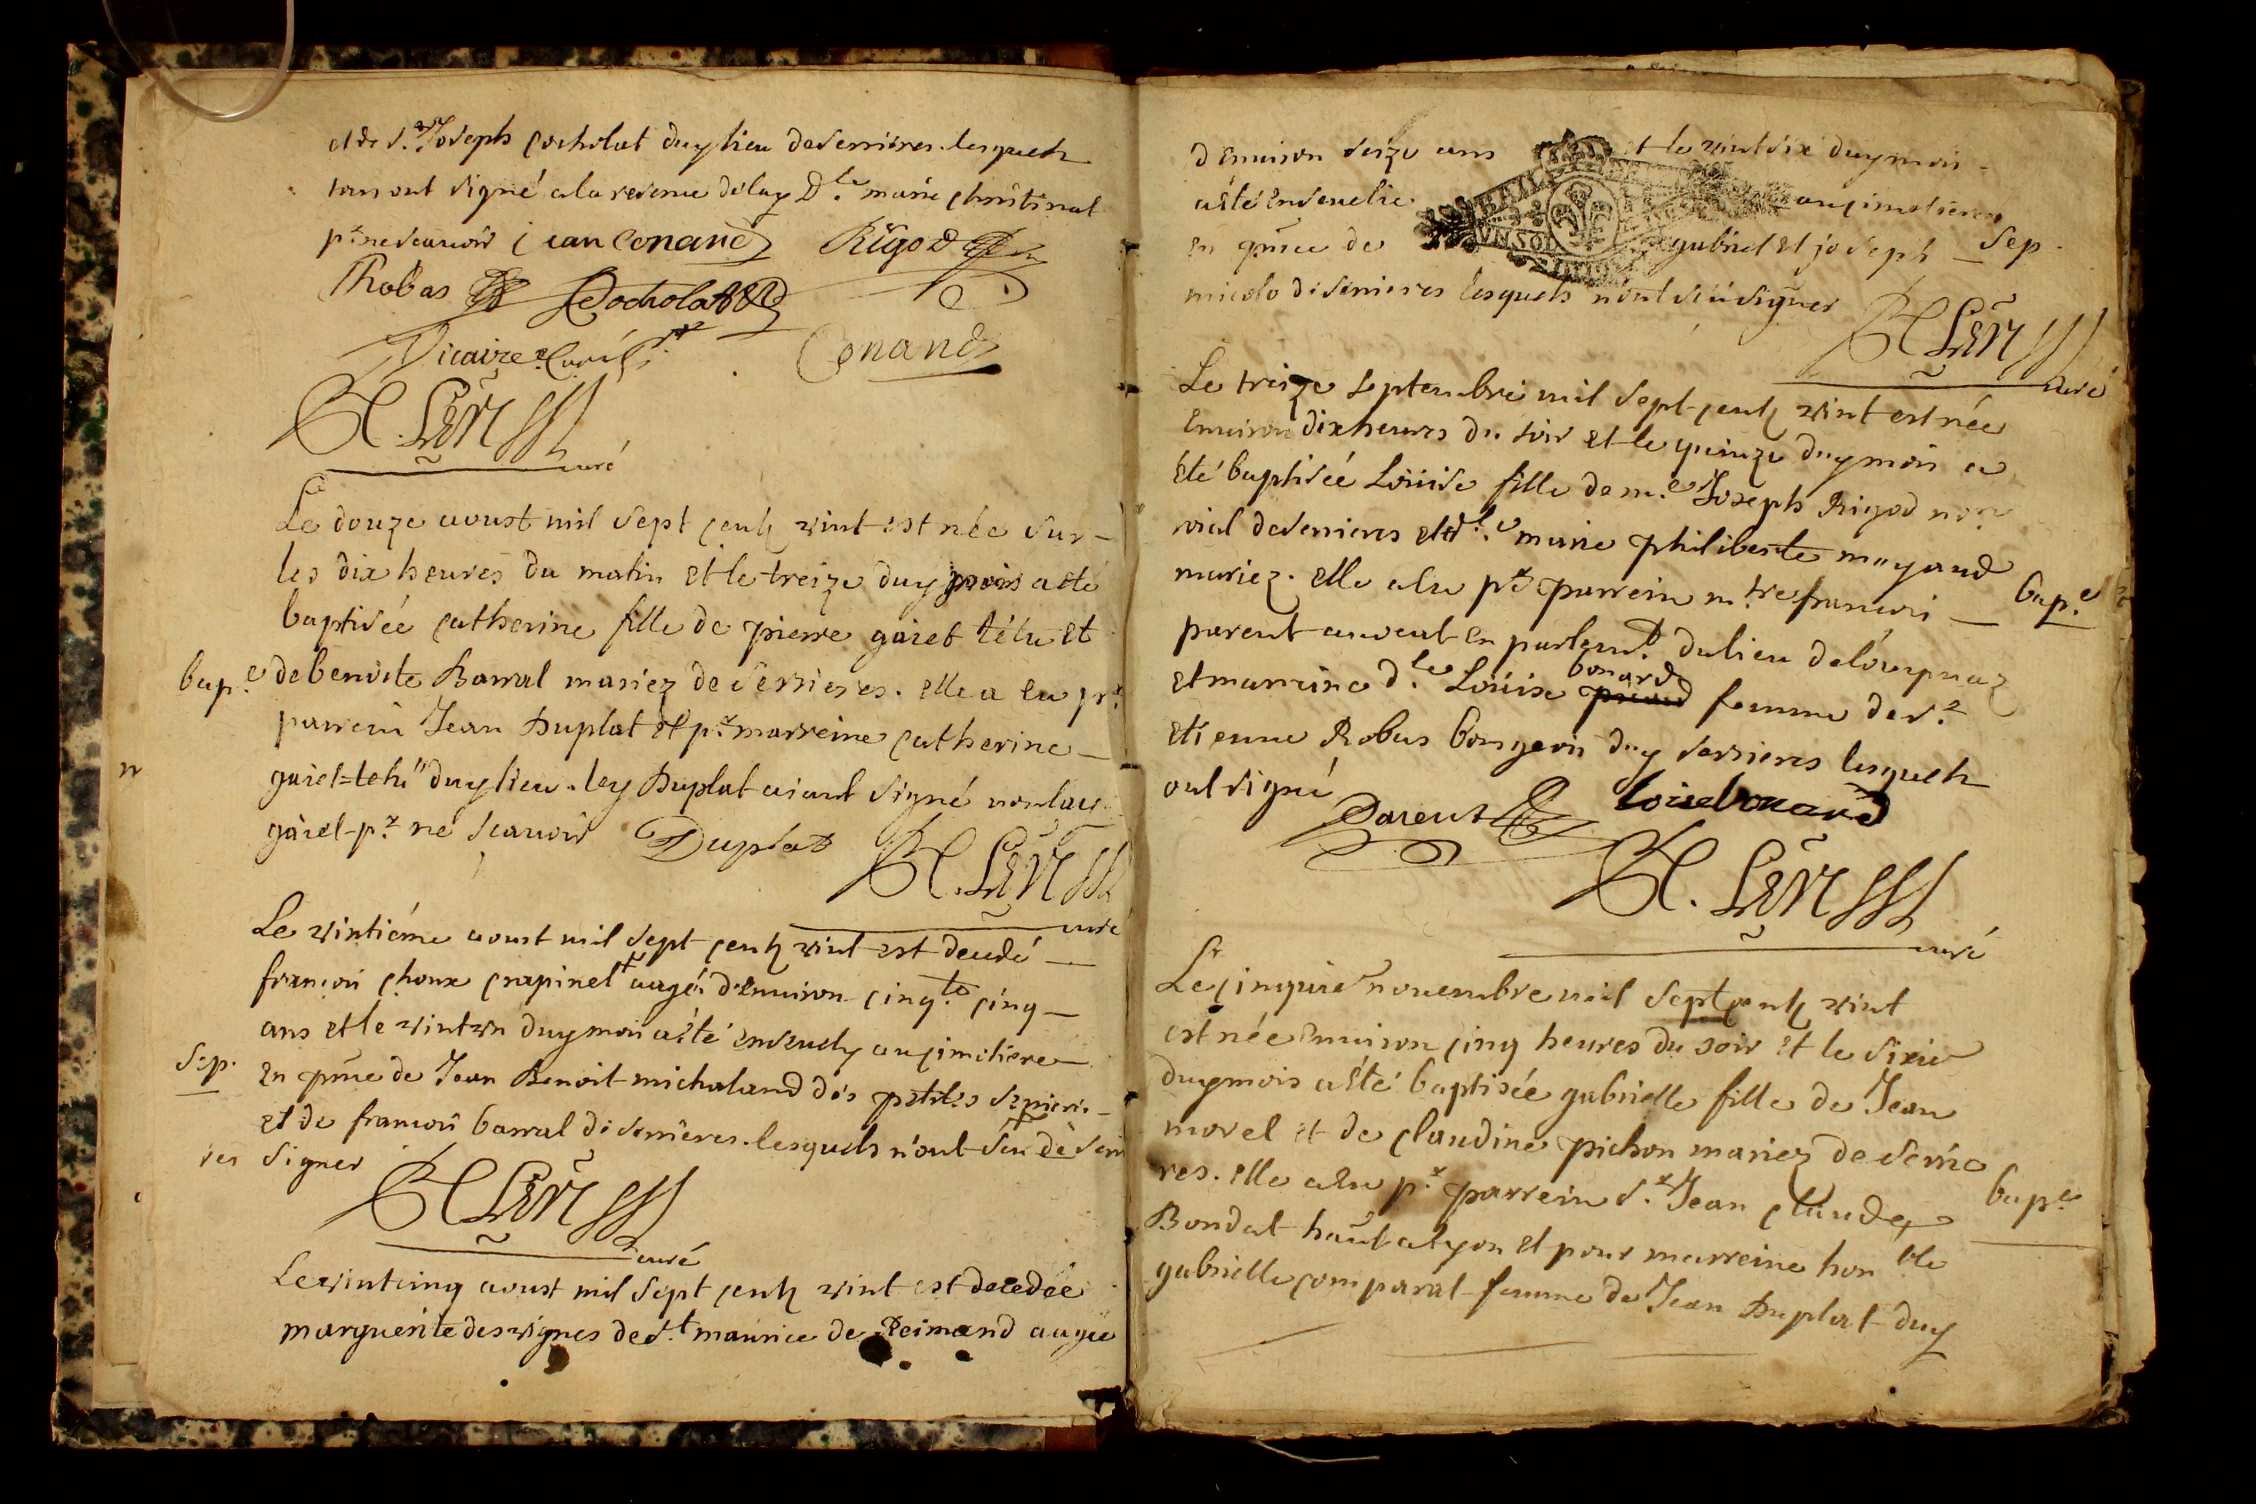 et de s.r Joseph cocholat duy lieu deserrieres. lesquels
tous ont signé a la reserve de lay D.le marie christinat
p.r ne scauoir jean Conand Rigod
Robas Cocholat
Vicaire Curé Conand
curé
Le douze aoust mil sept cents vint est née sur
les dix heures du matin et le treize duy mois a eté
baptisée catherine fille de pierre gaiet tétu et
bap.e de benoite Barral mariez de serrieres. elle a eu p.r
parrein Jean Duplat et p.r marreine catherine
gaiet=tetu duy lieu. ley Duplat aiant signé non lay
gaiet p.r ne scauoir Duplat
curé
Le vintiéme aoust mil sept cents vint est decedé
francois choux crapinet aagé d'enuiron cinq.te cinq
ans et le vint vn duy mois a eté enseuely au cimetiere
sep. en p͞nce de Jean Benoit michaland des petites serrieres
et de francois barral de serrieres. lesquels n'ont sceu de serri
res signer
curé
Le vintcinq aoust mil sept cents vint est decedée
marguerite des vignes de s.t maurice de Reimand aagée
d'enuiron seize ans et le vint six duy mois
a eté enseuelie au cimetiere
en p͞nce de gabriel et joseph sep.
micolo de serrieres lesquels n'ont sceu signer
curé
Le treize septembre mil sept cents vint est née
enuiron dix heures du soir et le quinze duy mois a
eté baptisée Loüise fille de m.e Joseph Rigod no
roial deserrieres et d.le marie philiberte moyand
mariez. elle a eu p.r parrein m.tre francois bap.e
parent auocat en parlem.t du lieu de
et marreine d.le Loüise bonard femme de s.r
etienne Robas bourgeois duy serrieres lesquels
ont signé
Parent loise bonard
curé
Le cinquie͞ nouembre mil sept cents vint
est née enuiron cinq heures du soir et le sixie͞
duy mois a eté baptisée gabrielle fille de Jean
morel et de claudine pichon mariez de serrie
res. elle a eu p.r parrein s.r Jean claude bap.e
Bondat habitant a lyon et pour marreine hon.ble
gabrielle comparat femme de Jean Duplat duy